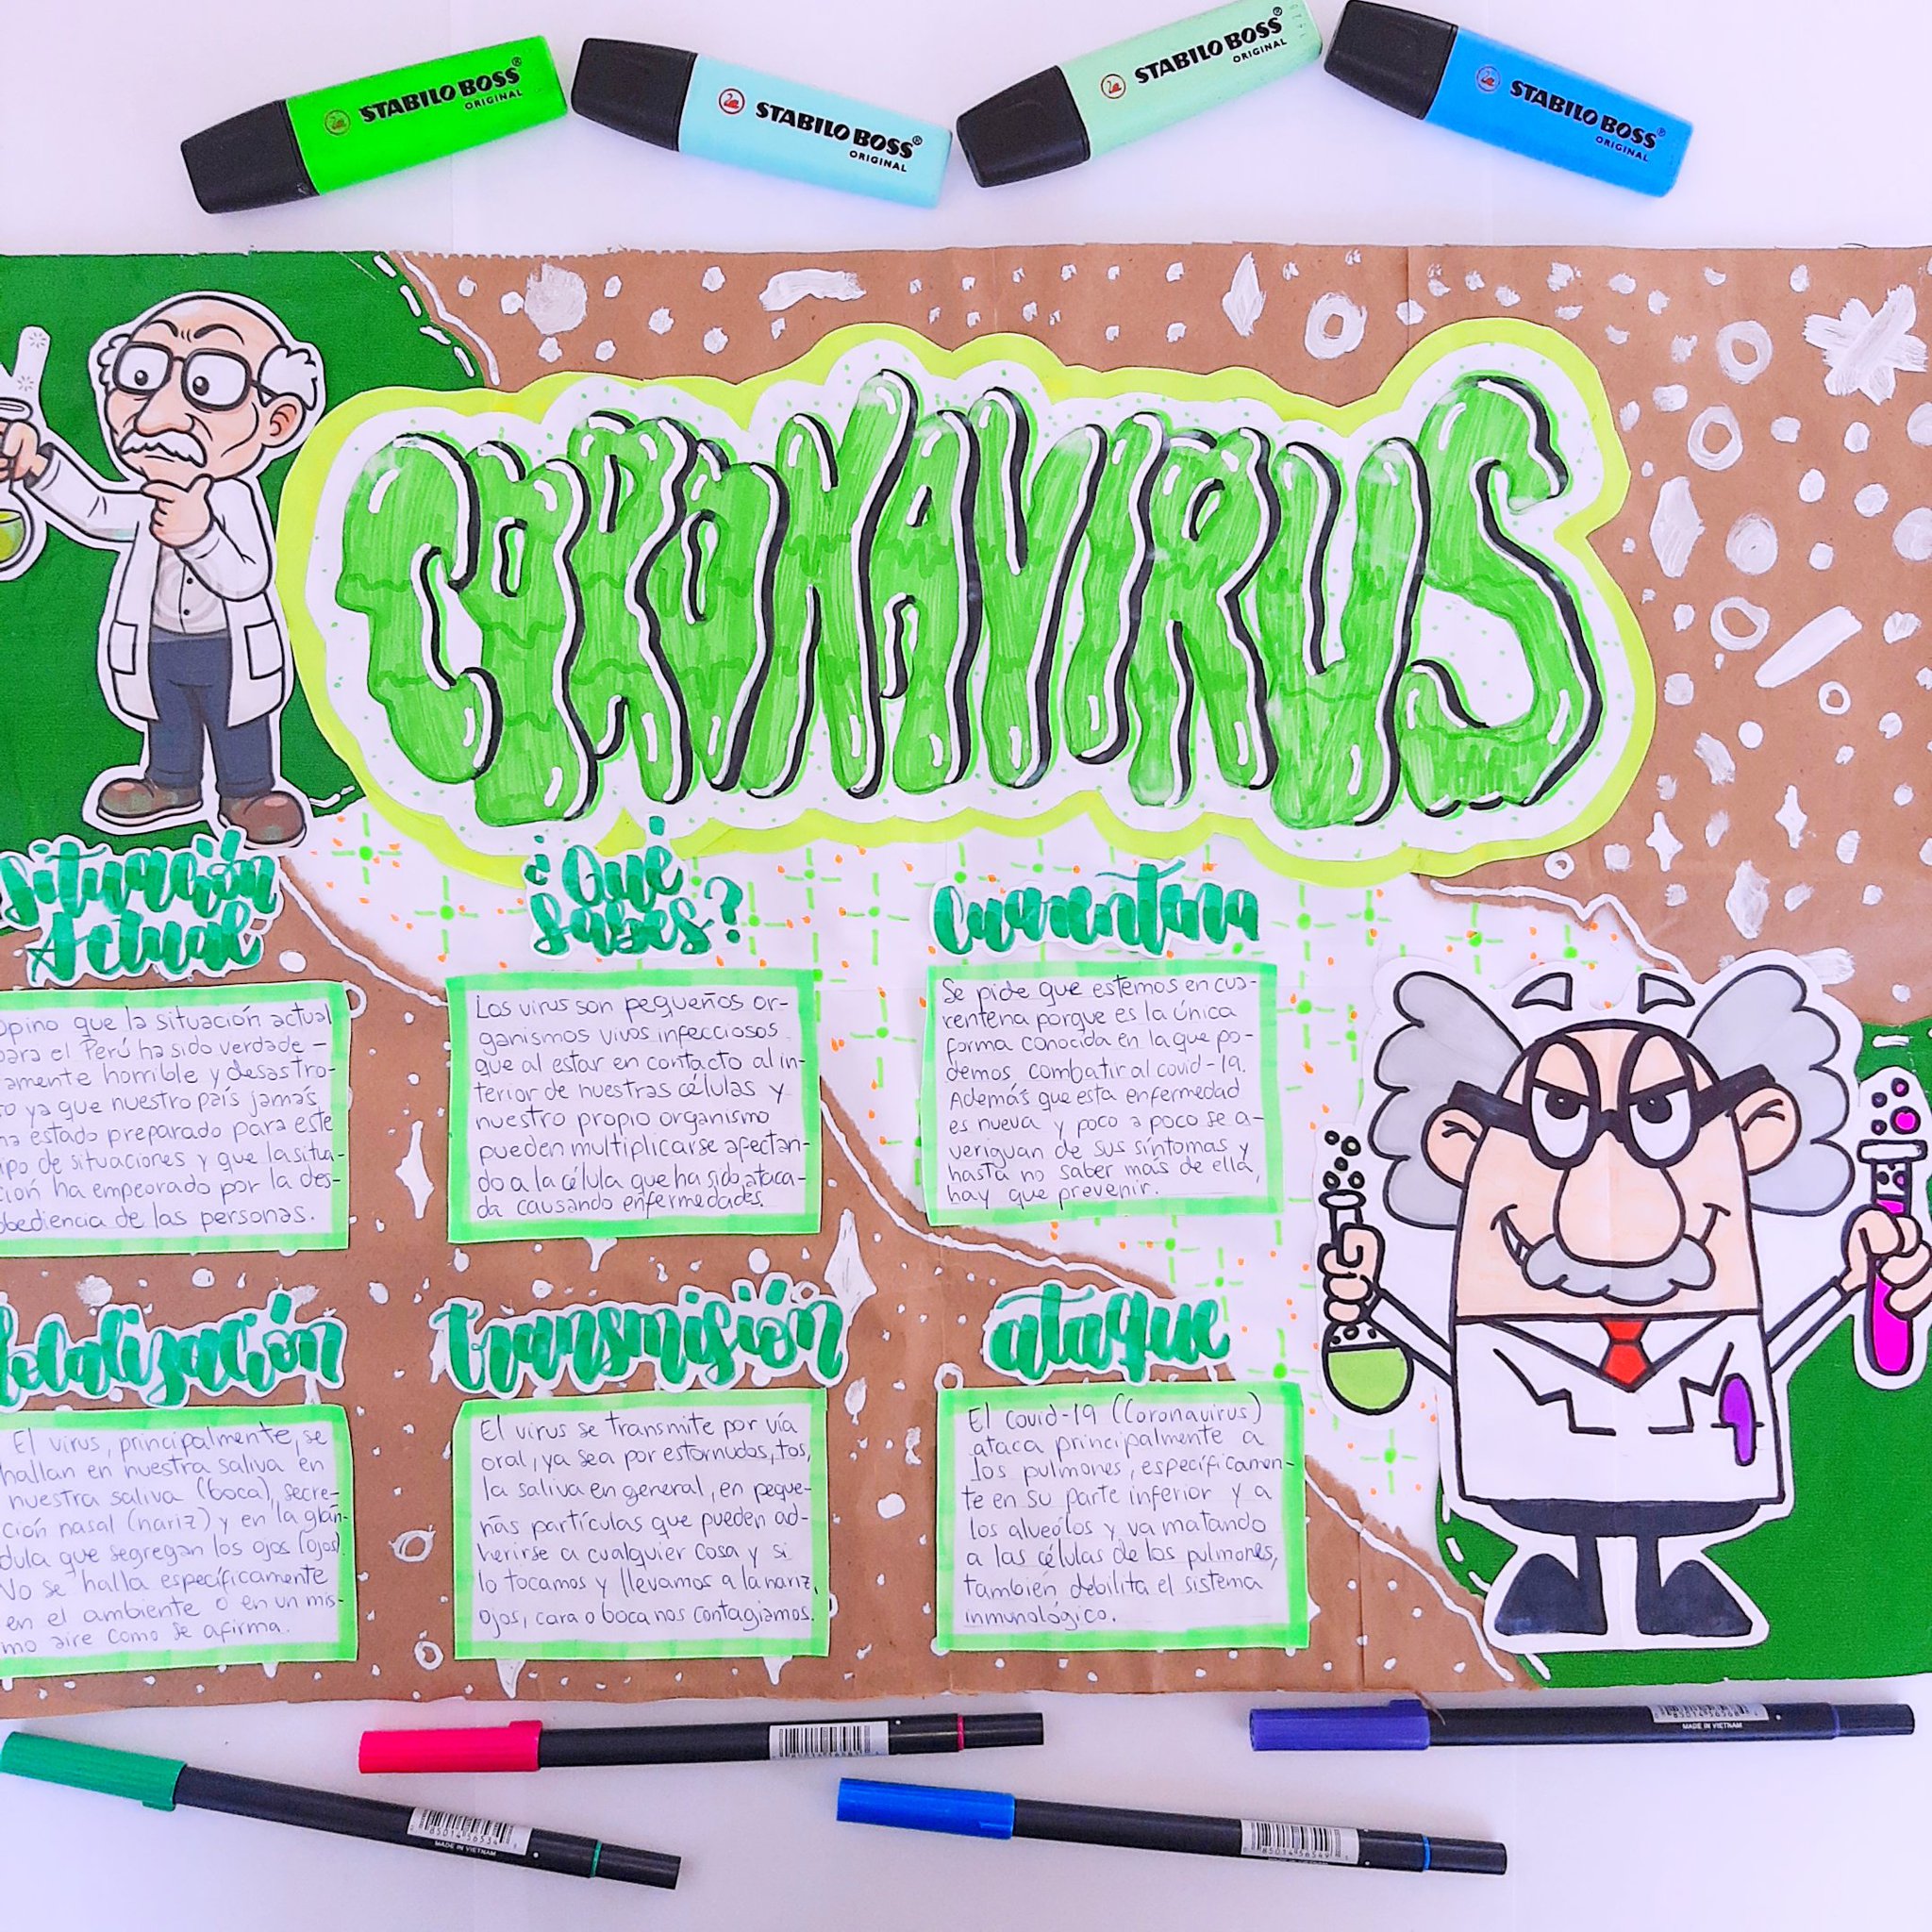 STABILO BOSS®
ORIGINAL
STABILO BOSS®
ORIGINAL
STABILO BOSS®
ORIGINAL
STABILO BOSS®
ORIGINAL
CORONAVIRUS
Situación
Actual
opino que la situación actual
para el Perú ha sido verdade-
amente horrible y desastro-
o ya que nuestro país jamás
ha estado preparado para este
ipo de situaciones y que la situa-
ción ha empeorado por la des-
obediencia de las personas.
¿Qué
sabes?
Los virus son pequeños or-
ganismos vivos infecciosos
que al estar en contacto al in-
terior de nuestras células y
nuestro propio organismo
pueden multiplicarse afectan-
do a la célula que ha sido ataca-
da causando enfermedades.
Cuarentena
Se pide que estemos en cua-
rentena porque es la única
forma conocida en la que po-
demos combatir al covid-19.
Además que esta enfermedad
es nueva y poco a poco se a-
veriguan de sus síntomas y
hasta no saber más de ella,
hay que prevenir.
localización
El virus, principalmente, se
hallan en nuestra saliva en
nuestra saliva (boca), secre-
ción nasal (nariz) y en la glán-
dula que segregan los ojos (ojos).
No se halla específicamente
en el ambiente o en un mis-
mo aire como se afirma.
transmisión
El virus se transmite por vía
oral, ya sea por estornudos, tos,
la saliva en general, en peque-
ñas partículas que pueden ad-
herirse a cualquier cosa y si
lo tocamos y llevamos a la nariz,
ojos, cara o boca nos contagiamos.
ataque
El covid-19 (Coronavirus)
ataca principalmente a
los pulmones, específicamen-
te en su parte inferior y a
los alveólos y va matando
a las células de los pulmones,
también debilita el sistema
inmunológico.
MADE IN VIETNAM
MADE IN VIETNAM